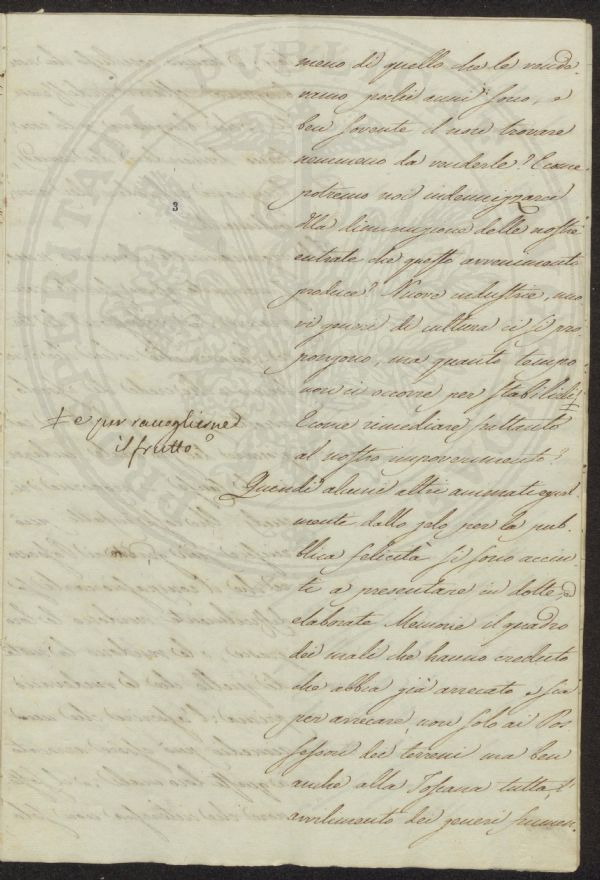 meno di quello che le vende
vamo pochi anni sono, e
ben sovente il non trovare
nemmeno da venderle? E come
potremo noi indennizzarci
alla diminuzione delle nostre
entrate che questo avvenimento
produce? Nuove industrie, nuo
vi generi di cultura ci si pro
pongono, ma quanto tempo
non ci occorre per stabilirli ‡
‡ e per raccoglierne
il frutto
E come rimediare frattanto
al nostro impoverimento?
Quindi alcuni altri animati egual
mente dallo zelo per la pub
blica felicità si sono accin
ti a presentare in dotte, ed
elaborate Memorie il quadro
dei mali che hanno creduto
che abbia già arrecato e sia
per arrecare, non solo ai Pos
sessori dei terreni ma ben
anche alla Toscana tutta, l'
avvilimento dei generi frumen
3